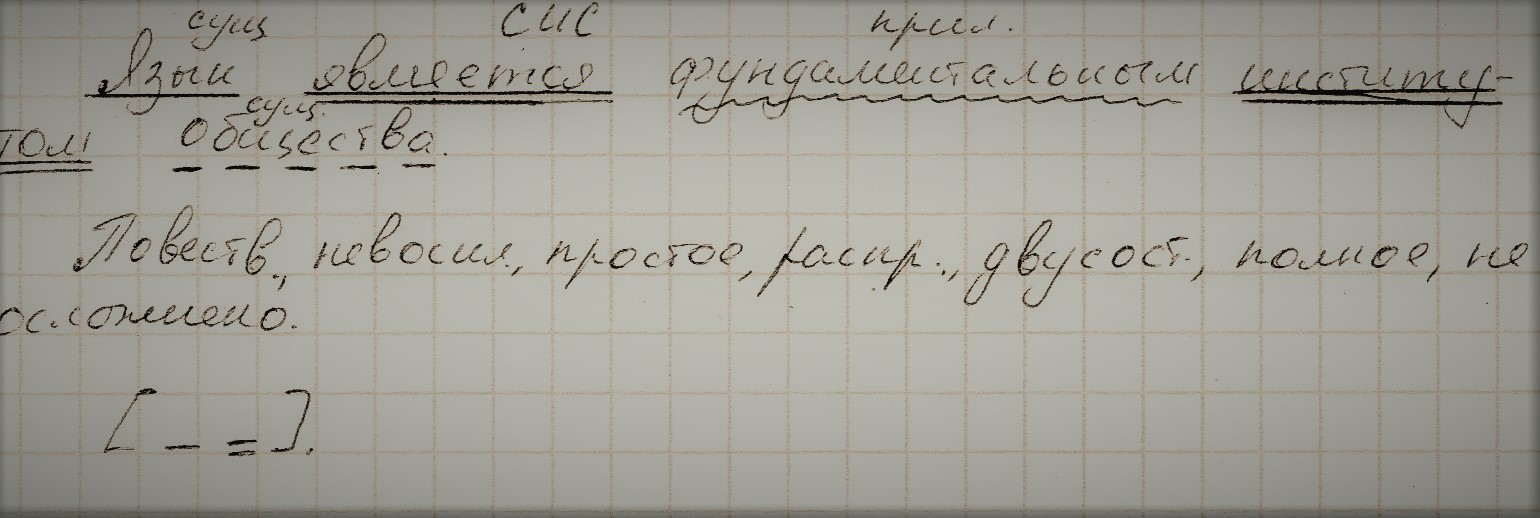 сущ СИС прил.
Язык является фундаментальным институ-
сущ.
том общества.
Повеств., невоскл, простое, распр., двусост., полное, не
осложнено.
[ – = ].